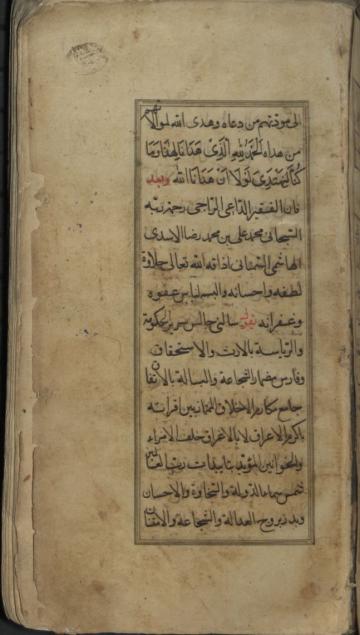 الى مودتهم من دعاه وهدى الله لموالاتهم
من هداه الحمد لله الذى هدانا لهذا وما
كنا لنهتدى لولا ان هدانا الله وبعد
فان الفقير الداعى الراجى رحمة ربه
السبحانى محمد على بن محمد رضا الاسدى
الهاشمى اذاقه الله تعالى حلاوة
لطفه واحسانه والبسه لباس عفوه
وغفرانه يقول سالنى جالس سرير الحكومة
والرياسة بالارث والاستحقاق
وفارس مضمار الشجاعة والبسالة بالاتفاق
جامع مكارم الاخلاق الممتاز بين اقرانه
بكرم الاعراق لا بالاغراق خلف الامراء
والخوانين المؤيد بتاييدات رب العالمين
شمس سماء الدولة والسخاوة والاحسان
وبدر بروج العدالة والشجاعة والامتنان